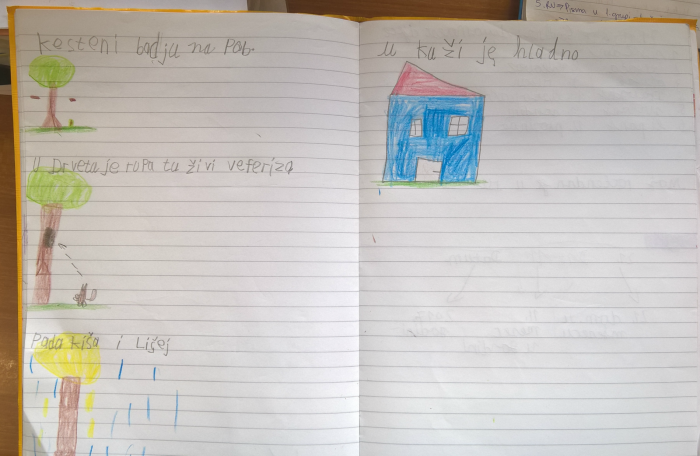 kesteni badju na Pob.
U Drveta je rupa tu živi veferiza
Pada kiša i Lišej
u kuži je hladno